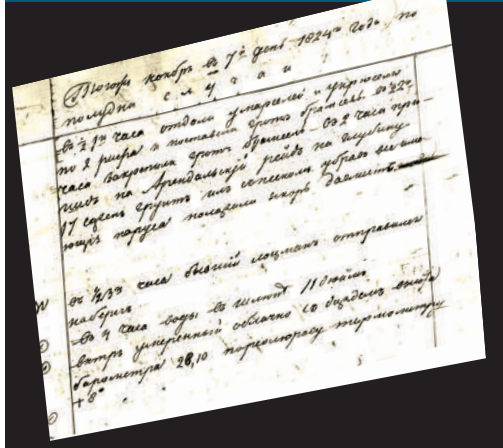 ноябрь въ 7й день 1824го года по
полудни случаи
въ ½ 1го часа отдали у марселей и укрюсели
по 2 рифа и поставили гротъ брамсель въ ½2го
часа закрепили гротъ брамсель въ 2 часа при-
шедъ на Арендальскій рейдъ на глубину
17 сажень грунтъ илъ съ пескомъ убравъ все имъ-
ющіе паруса положили якорь
въ ½3го часа бывшій лоцманъ отправился
на берегъ
въ 4 часа воды въ 11 дюймъ
вѣтръ умеренный облачно со
барометра 28,10 термометру
+8°